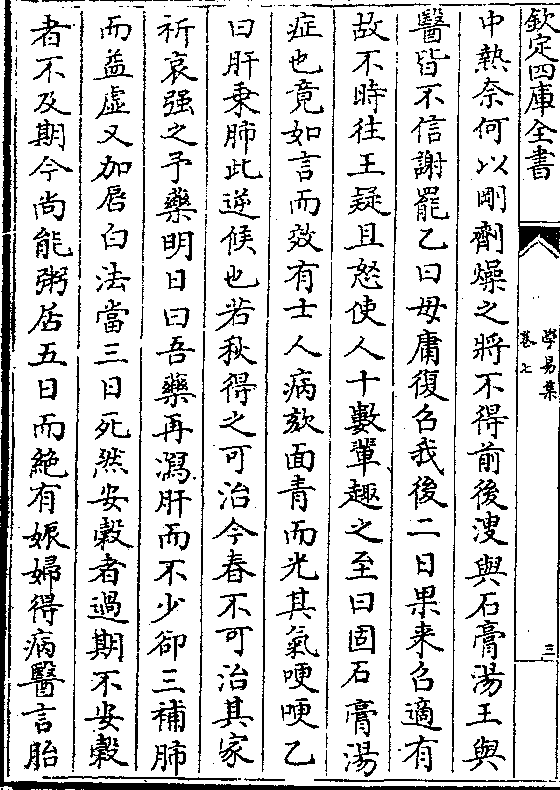 欽定四庫全書
學易集
卷七
三
中熱奈何以剛劑燥之將不得前後溲與石膏湯王與
醫皆不信謝罷乙曰毋庸復召我後二日果来召適有
故不時往王疑且怒使人十數軰趣之至曰固石膏湯
症也竟如言而效有士人病欬面青而光其氣哽哽乙
曰肝乗肺此逆候也若秋得之可治今春不可治其家
祈哀强之予藥明日曰吾藥再瀉肝而不少卻三補肺
而益虚又加唇白法當三日死然安榖者過期不安榖
者不及期今尚能粥居五日而絶有娠婦得病醫言胎